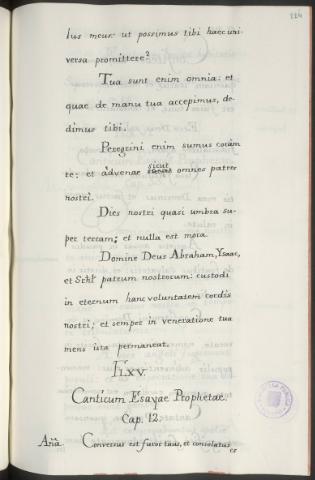 224
lus meus: ut possimus tibi haec uni-
versa promittere?
Tua sunt enim omnia: et
quae de manu tua accepimus, de-
dimus tibi.
Peregrini enim sumus coràm
te: et àdvenae sicut omnes patres
nostri.
Dies nostri quasi umbra su-
per terram; et nulla est mora.
Domine Deus Abraham, Ysaac,
et Srhl patrum nostrorum: custodi
in eternum hanc voluntatem cordis
nostri; et semper in veneratione tua
mens ista permaneat.
LXV.
Canticum Esayae Prophetae.
Cap. 12.
Aña. Conversus est furor tuus, et consolatus
es